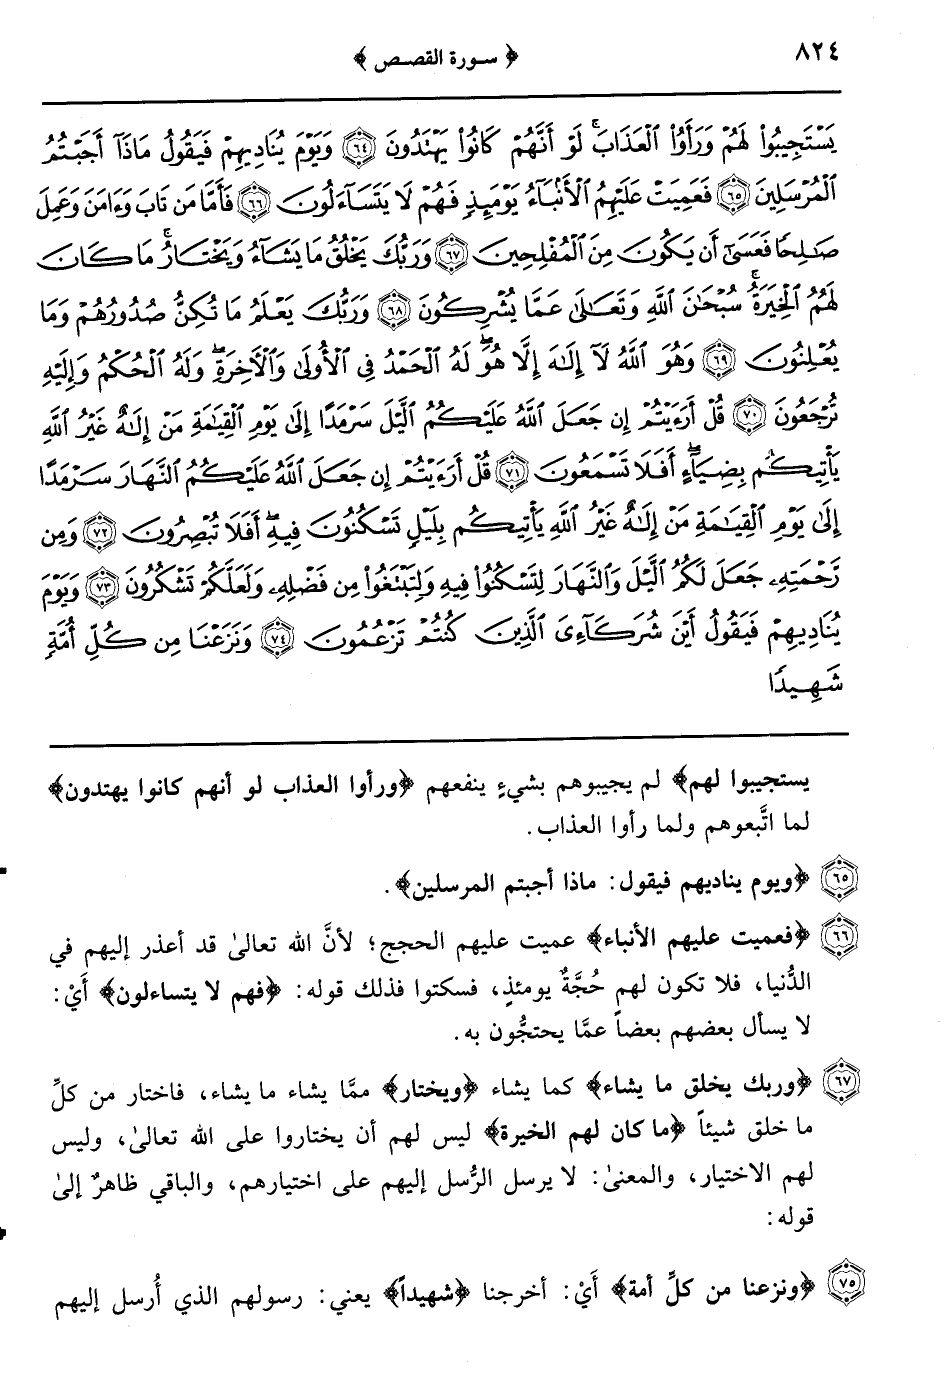 ﴿ سورة القصص ﴾ ٨٢٤
يَسْتَجِيبُوا۟ لَهُمْ وَرَأَوُا۟ ٱلْعَذَابَ ۚ لَوْ أَنَّهُمْ كَانُوا۟ يَهْتَدُونَ ٦٤ وَيَوْمَ يُنَادِيهِمْ فَيَقُولُ مَاذَآ أَجَبْتُمُ
ٱلْمُرْسَلِينَ ٦٥ فَعَمِيَتْ عَلَيْهِمُ ٱلْأَنۢبَآءُ يَوْمَئِذٍ فَهُمْ لَا يَتَسَآءَلُونَ ٦٦ فَأَمَّا مَن تَابَ وَءَامَنَ وَعَمِلَ
صَـٰلِحًا فَعَسَىٰٓ أَن يَكُونَ مِنَ ٱلْمُفْلِحِينَ ٦٧ وَرَبُّكَ يَخْلُقُ مَا يَشَآءُ وَيَخْتَارُ ۗ مَا كَانَ
لَهُمُ ٱلْخِيَرَةُ ۚ سُبْحَـٰنَ ٱللَّهِ وَتَعَـٰلَىٰ عَمَّا يُشْرِكُونَ ٦٨ وَرَبُّكَ يَعْلَمُ مَا تُكِنُّ صُدُورُهُمْ وَمَا
يُعْلِنُونَ ٦٩ وَهُوَ ٱللَّهُ لَآ إِلَـٰهَ إِلَّا هُوَ ۖ لَهُ ٱلْحَمْدُ فِى ٱلْأُولَىٰ وَٱلْـَٔاخِرَةِ ۖ وَلَهُ ٱلْحُكْمُ وَإِلَيْهِ
تُرْجَعُونَ ٧٠ قُلْ أَرَءَيْتُمْ إِن جَعَلَ ٱللَّهُ عَلَيْكُمُ ٱلَّيْلَ سَرْمَدًا إِلَىٰ يَوْمِ ٱلْقِيَـٰمَةِ مَنْ إِلَـٰهٌ غَيْرُ ٱللَّهِ
يَأْتِيكُم بِضِيَآءٍ ۖ أَفَلَا تَسْمَعُونَ ٧١ قُلْ أَرَءَيْتُمْ إِن جَعَلَ ٱللَّهُ عَلَيْكُمُ ٱلنَّهَارَ سَرْمَدًا
إِلَىٰ يَوْمِ ٱلْقِيَـٰمَةِ مَنْ إِلَـٰهٌ غَيْرُ ٱللَّهِ يَأْتِيكُم بِلَيْلٍ تَسْكُنُونَ فِيهِ ۖ أَفَلَا تُبْصِرُونَ ٧٢ وَمِن
رَّحْمَتِهِۦ جَعَلَ لَكُمُ ٱلَّيْلَ وَٱلنَّهَارَ لِتَسْكُنُوا۟ فِيهِ وَلِتَبْتَغُوا۟ مِن فَضْلِهِۦ وَلَعَلَّكُمْ تَشْكُرُونَ ٧٣ وَيَوْمَ
يُنَادِيهِمْ فَيَقُولُ أَيْنَ شُرَكَآءِىَ ٱلَّذِينَ كُنتُمْ تَزْعُمُونَ ٧٤ وَنَزَعْنَا مِن كُلِّ أُمَّةٍ
شَهِيدًا
يستجيبوا لهم﴾ لم يجيبوهم بشيءٍ ينفعهم ﴿ورأوا العذاب لو أنهم كانوا يهتدون﴾
لما اتَّبعوهم ولما رأوا العذاب.
٦٥ ﴿ويوم يناديهم فيقول: ماذا أجبتم المرسلين﴾.
٦٦ ﴿فعميت عليهم الأنباء﴾ عميت عليهم الحجج؛ لأنَّ الله تعالىٰ قد أعذر إليهم في
الدُّنيا، فلا تكون لهم حُجَّةٌ يومئذٍ، فسكتوا فذلك قوله: ﴿فهم لا يتساءلون﴾ أَيْ:
لا يسأل بعضهم بعضاً عمَّا يحتجُّون به.
٦٧ ﴿وربك يخلق ما يشاء﴾ كما يشاء ﴿ويختار﴾ ممَّا يشاء ما يشاء، فاختار من كلِّ
ما خلق شيئاً ﴿ما كان لهم الخيرة﴾ ليس لهم أن يختاروا على الله تعالىٰ، وليس
لهم الاختيار، والمعنىٰ: لا يرسل الرُّسل إليهم على اختيارهم، والباقي ظاهرٌ إلىٰ
قوله:
٧٥ ﴿ونزعنا من كلِّ أمة﴾ أَيْ: أخرجنا ﴿شهيداً﴾ يعني: رسولهم الذي أُرسل إليهم